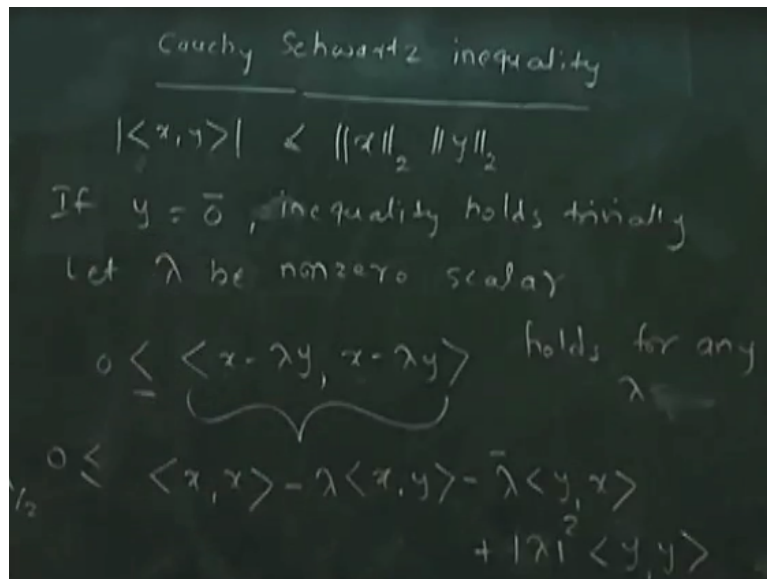 Couchy Schwartz inequality
|<x,y>| < ||x||₂ ||y||₂
If y = 0̄, inequality holds trivially
Let λ be nonzero scalar
0 ≤ <x-λy, x-λy> holds for any λ
0 ≤ <x,x> - λ<x,y> - λ̄<y,x>
+ |λ|² <y,y>